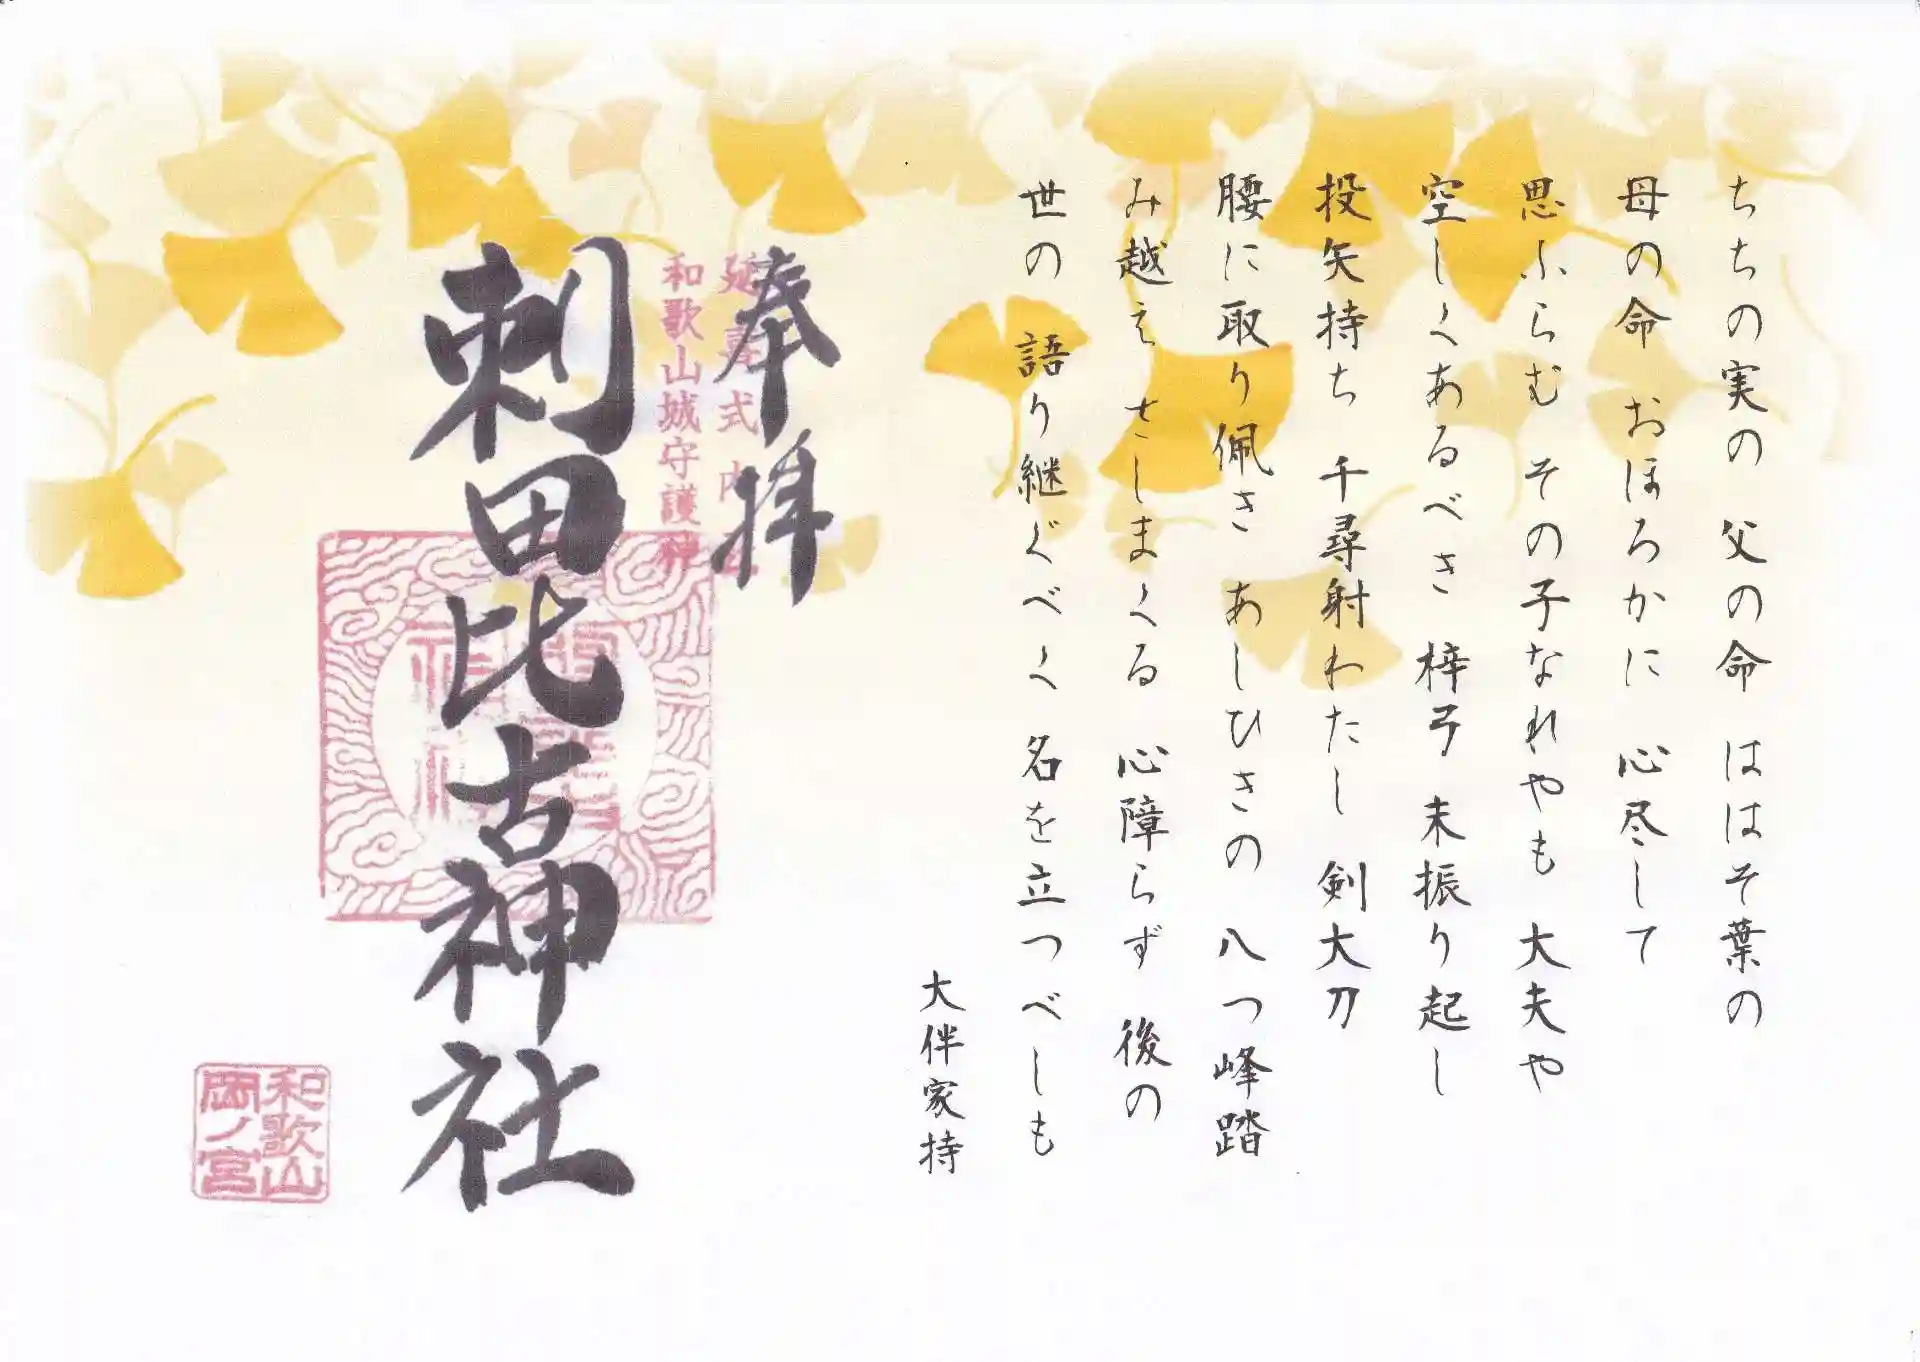 ちちの実の 父の命 ははそ葉の
母の命 おほろかに 心尽して
思ふらむ その子なれやも 大夫や
空しくあるべき 梓弓 末振り起し
投矢持ち 千尋射わたし 剣大刀
腰に取り佩き あしひきの 八つ峰踏
み越え さしまくる 心障らず 後の
世の 語り継ぐべく 名を立つべしも
大伴家持
奉拝
延喜式内社
和歌山城守護神
刺田比古神社
和歌山
岡ノ宮